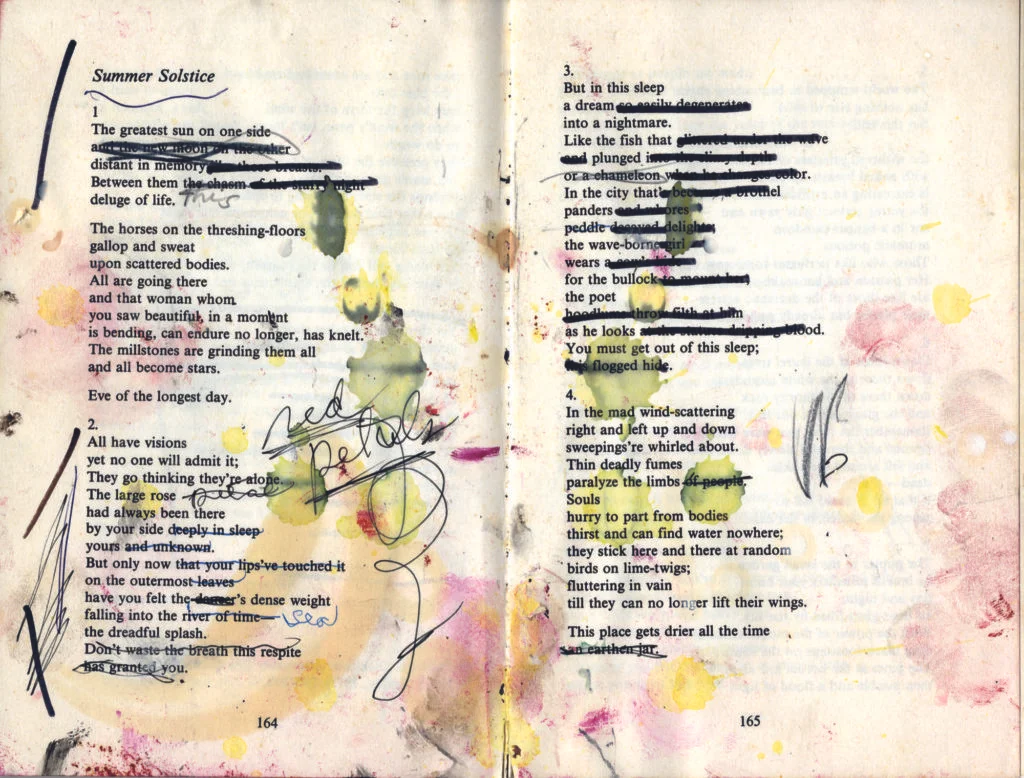 Summer Solstice
1
The greatest sun on one side
and the new moon on the other
distant in memory breasts.
Between them the chasm of the starry night
deluge of life. this
The horses on the threshing-floors
gallop and sweat
upon scattered bodies.
All are going there
and that woman whom
you saw beautiful, in a moment
is bending, can endure no longer, has knelt.
The millstones are grinding them all
and all become stars.
Eve of the longest day.
red
petals
2.
All have visions
yet no one will admit it;
They go thinking they're alone.
The large rose petal
had always been there
by your side deeply in sleep
yours and unknown.
But only now that your lips've touched it
on the outermost leaves
have you felt the dancer's dense weight
falling into the river of time— sea
the dreadful splash.
Don't waste the breath this respite
has granted you.
164
3.
But in this sleep
a dream so easily degenerates
into a nightmare.
Like the fish that glimmered under the wave
and plunged into the slimy depths
or a chameleon when he changes color.
In the city that's become a brothel
panders and whores
peddle decayed delights;
the wave-borne girl
wears a
for the bullock to mount her;
the poet
hoodlums throw filth at him
as he looks at the statues dripping blood.
You must get out of this sleep;
flogged hide.
4.
In the mad wind-scattering
right and left up and down
sweepings're whirled about.
Thin deadly fumes
paralyze the limbs of people.
Souls
hurry to part from bodies
thirst and can find water nowhere;
they stick here and there at random
birds on lime-twigs;
fluttering in vain
till they can no longer lift their wings.
This place gets drier all the time
an earthen jar.
165